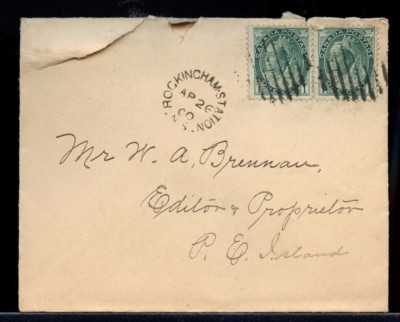 CANADA POSTAGE CANADA POSTAGE
ROCKINGHAM·STATION
AP 26
00
N.S.
Mr W. A. Brennan,
Editor & Proprietor
P. E. Island